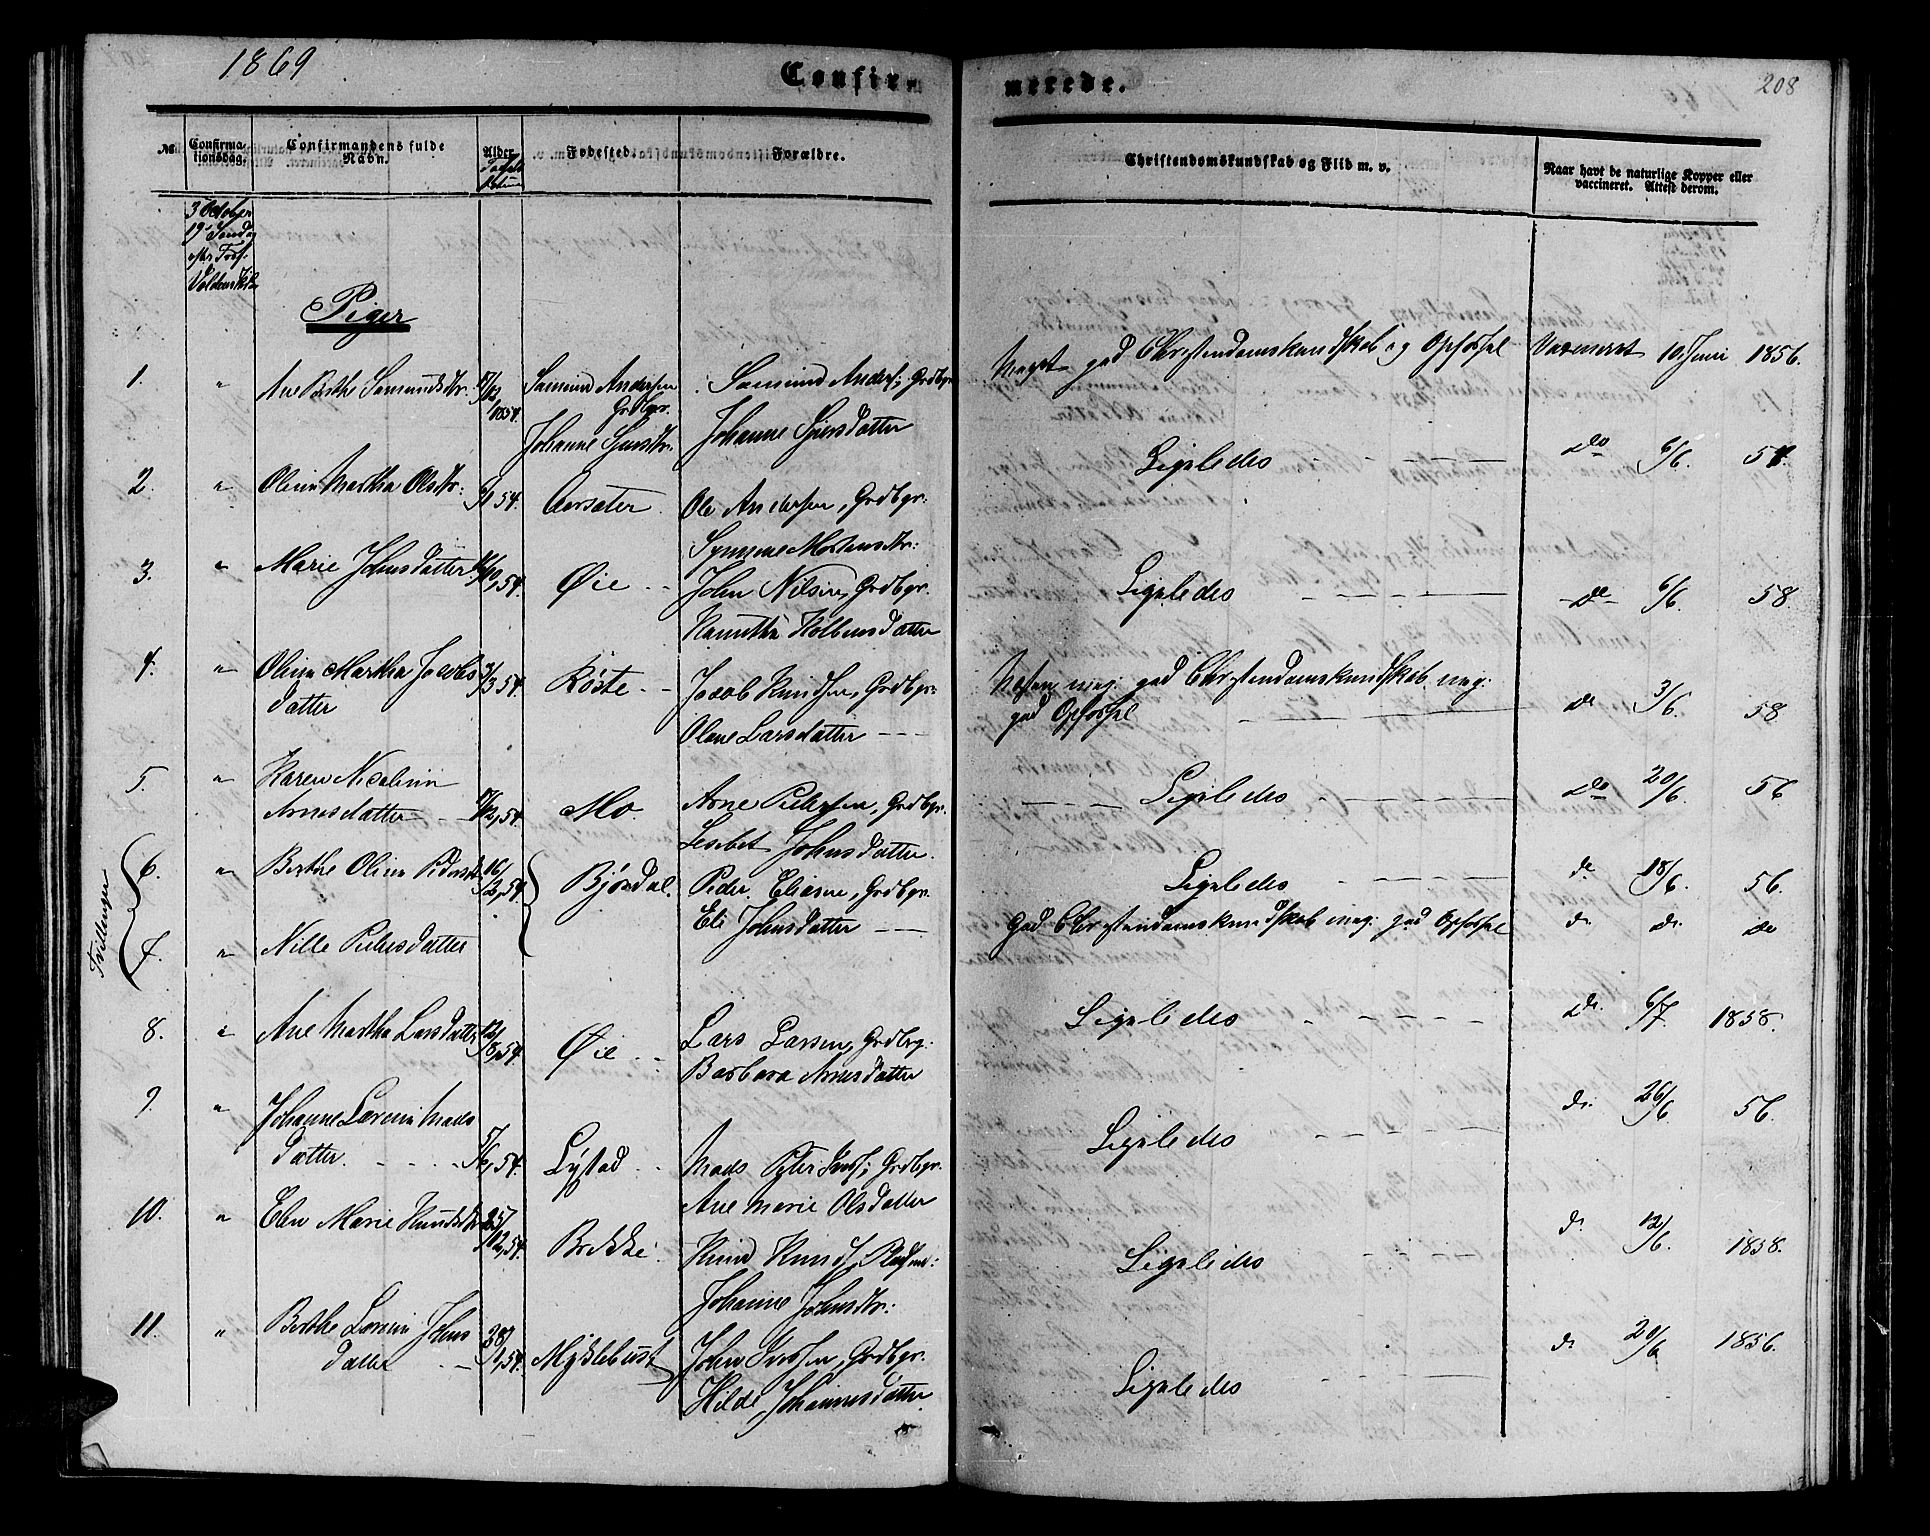 1869
Confir
merede.
208
No
Confirma-
tionsdag.
Confirmandens fulde
Navn.
Alder
Fødested.
Forældre.
Christendomskundskab og Flid m. v.
Naar havt de naturlige Kopper eller
vaccineret. Attest derom.
3 October
19 Søndag
efter Tref.
Piger
1. " Ane Berthe Samundsdtr. 1854. Samund Andersen Samund Anders, Grdbgr
Grdbgr.
Johanne Sjursdtr. Johanne Sjursdatter
Meget god Christendomskundskab og Opførsel Vaccineret 10 Juni 1856.
2. " Oline Martha Olsdtr. 54. Aarsæter. Ole Andersen, Grdbgr.
Synneve Mortensdtr.
Ligeledes do 6/6. 54.
3. " Marie Johnsdatter 54. Øie John Nilsen, Grdbgr.
Ligeledes do 6/6. 58
4. " Oline Martha Jacobs 3/3 54. Røste Jacob Knudsen, Grdbgr.
datter Olene Larsdatter
Næsten meg. god Christendomskundskab meg.
god Opførsel do 3/6. 58
5. " Karen Nicoline
Arnesdatter 54. Mo Arne Petersen, Grdbgr.
Lisebet Johnsdatter.
Ligeledes do 20/6. 56
Tvillinger
6. " Berthe Oline Pedersdtr 16/2, 54. Bjørdal. Peder Eliasen, Grdbgr.
Eli Johnsdatter
Ligeledes do 18/6. 56.
7. " Nille Pedersdatter
God Christendomskundskab meg. god Opførsel do do. do
8. " Ane Martha Larsdatter 12/8, 54. Øie Lars Larsen, Grdbrg.
Barbara Arnesdatter
Ligeledes do. 6/7. 1858.
9. " Johanne Lovine Mads
datter. 54. Lystad Mads Peter Ivers, Grdbgr.
Ane Marie Olsdatter
Ligeledes do. 26/6. 56.
10. " Elen Marie Knudsdtr 25/12, 54. Brekke Knud Knuds, Pladsmd.
Johanne Johnsdtr.
Ligeledes do 12/6. 1858.
11. " Berthe Lovine Johns
datter 28/1, 54. Myklebust John Iversen, Grdbgr.
Hilde Johannesdatter
Ligeledes do 20/6 1856.